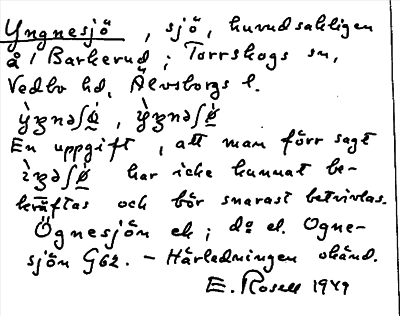 Yngnesjö, sjö, huvudsakligen
å / Barkerud; Torrskogs sn,
Vedbo hd, Älvsborgs l.
En uppgift, att man förr sagt
har icke kunnat be-
kräftas och bör snarast betvivlas.
Ögnesjön ek; do el. Ogne-
sjön G62. – Härledningen okänd.
E. Rosell 1949